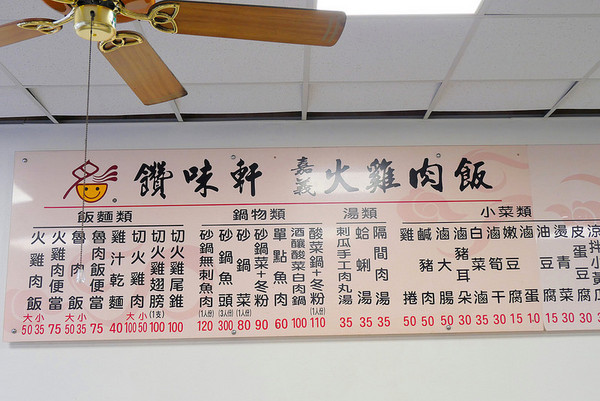 鑽味軒 嘉義 火雞肉飯
飯麵類
火雞肉飯 大50 小35
火雞肉便當 75
魯肉飯 大50 小35
魯肉飯便當 75
雞汁乾麵 40
切火雞肉 大100 小50
切火雞翅膀(1支) 100
切火雞尾錐 100
鍋物類
砂鍋無刺魚肉(1人份) 120
砂鍋魚頭(3人份) 300
砂鍋菜(1人份) 80
砂鍋菜+冬粉(1人份) 90
單點魚肉 60
酒釀酸菜白肉鍋 100
酸菜鍋+冬粉(1人份) 110
湯類
刺瓜手工肉丸湯 35
蛤蜊湯 35
隔間肉湯 35
小菜類
雞捲 50
鹹豬肉 50
滷大腸 50
滷豬耳朵 30
白菜滷 35
滷筍干 30
嫩豆腐 15
滷蛋 10
油豆腐 15
燙青菜 30
皮蛋豆腐 30
涼拌小